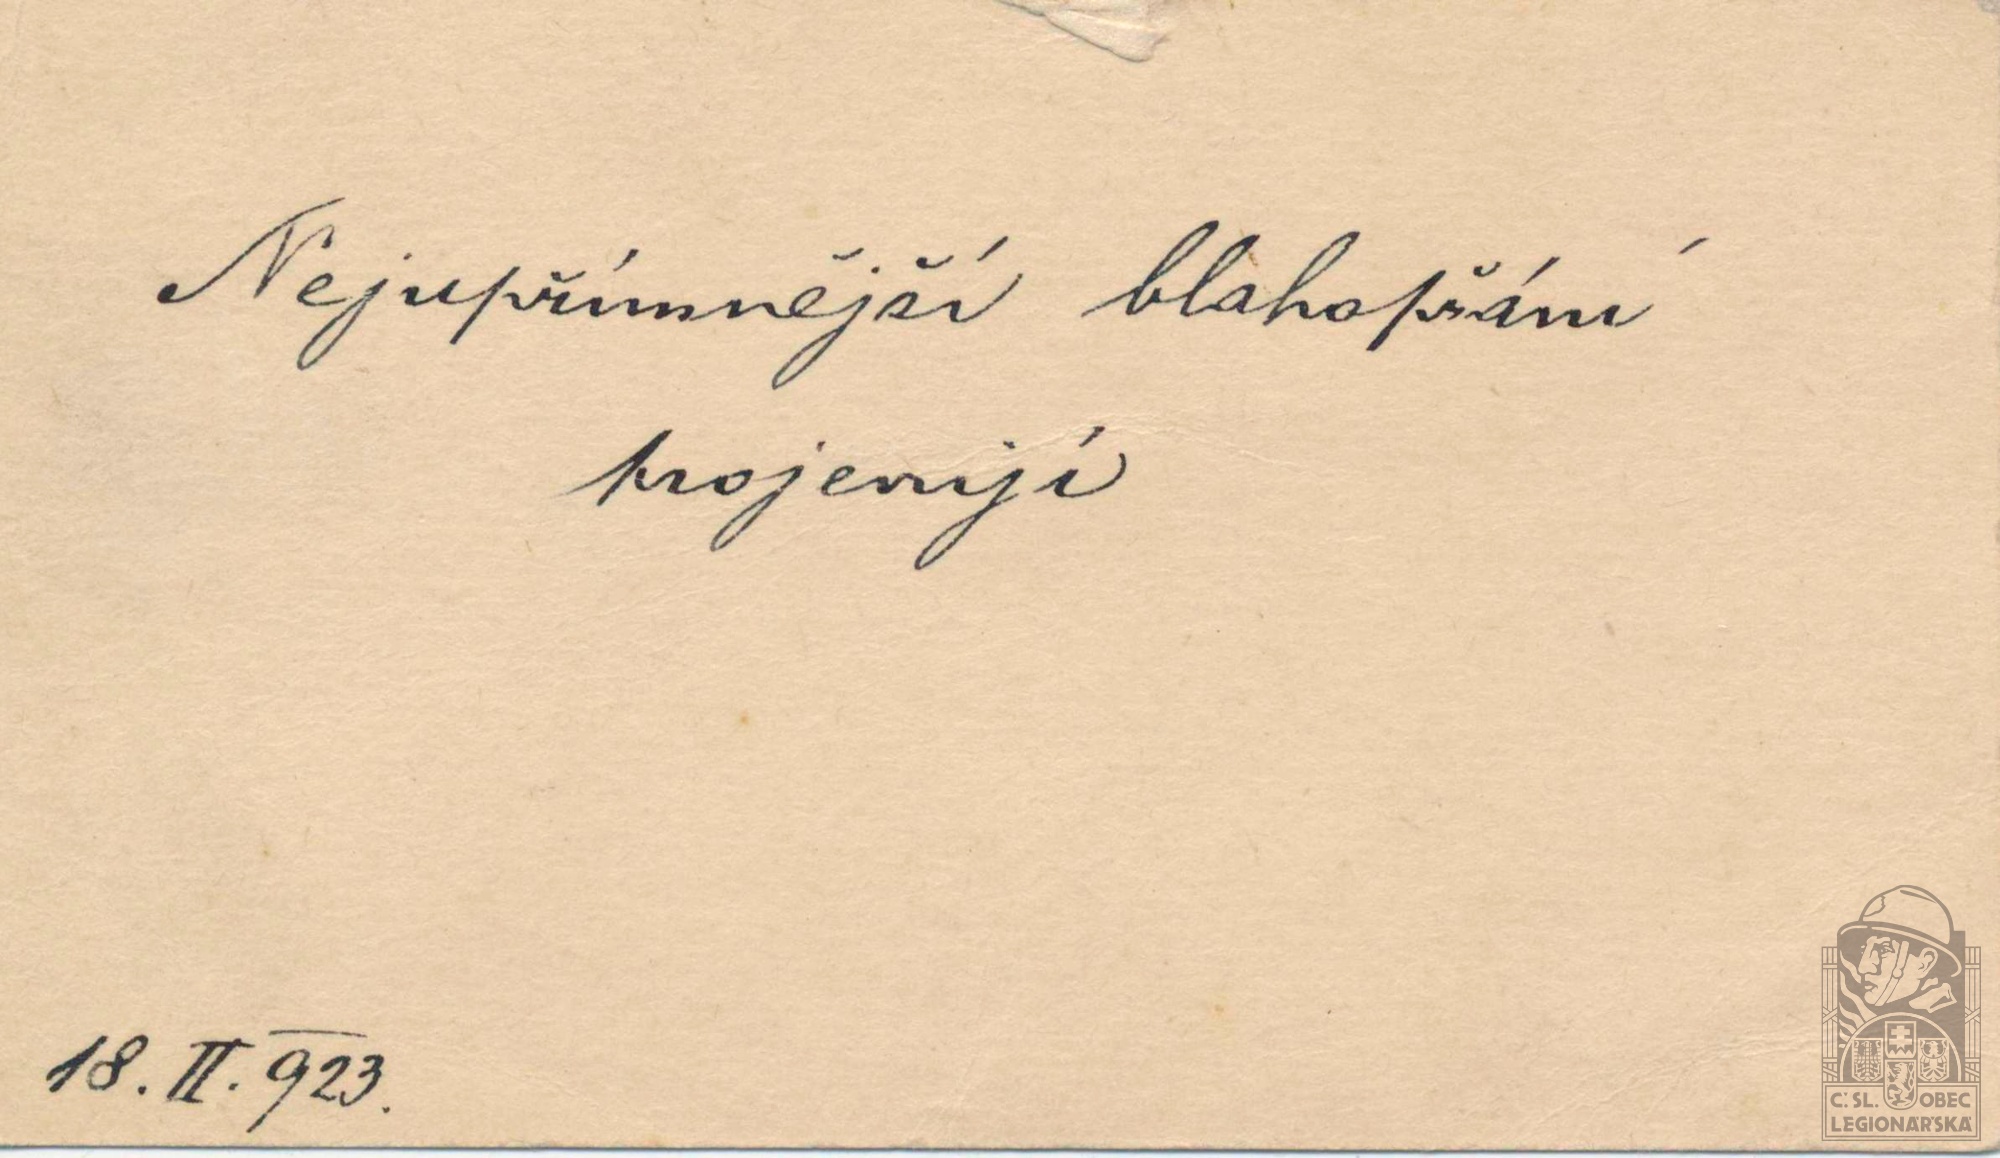 Nejupřímnější blahopřání
projevují
18. II. 923.
Č.SL. OBEC
LEGIONÁŘSKÁ